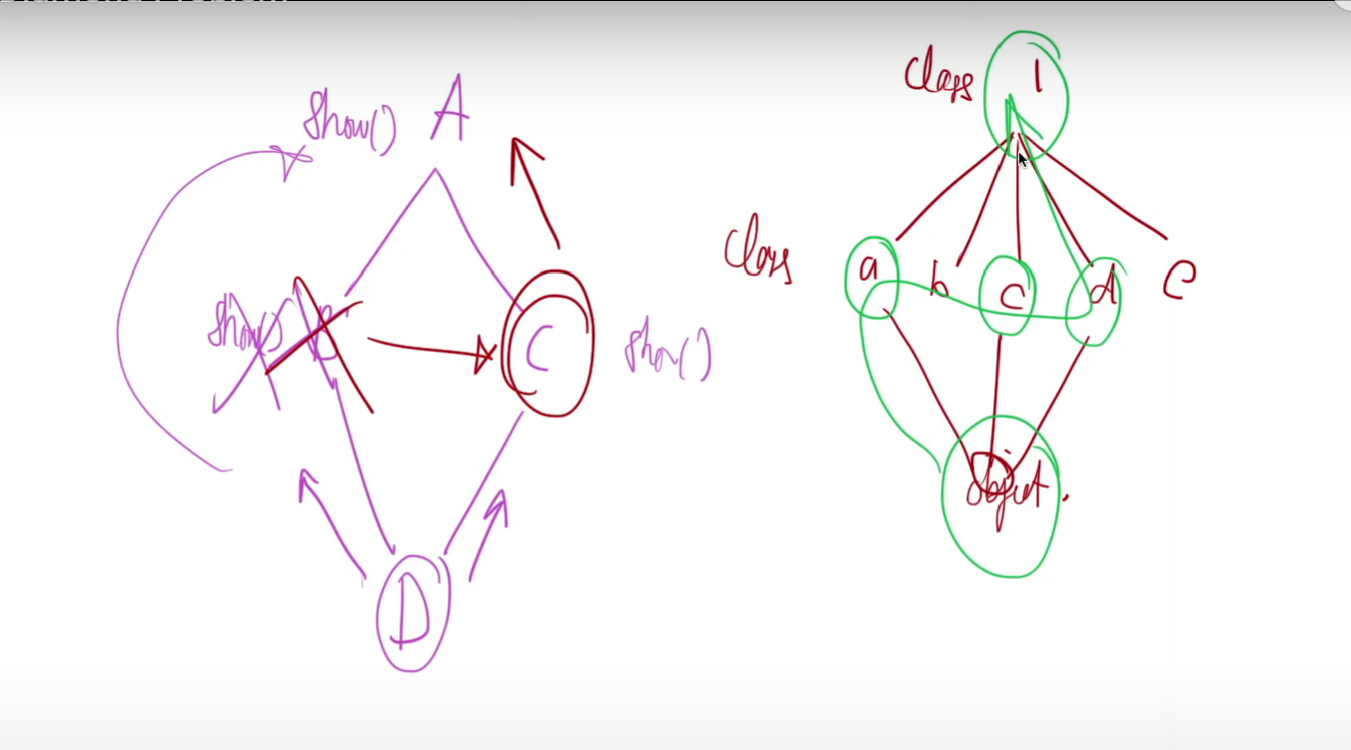 Show() A
Show() B
C Show()
D
Class 1
Class a b C d e
object.